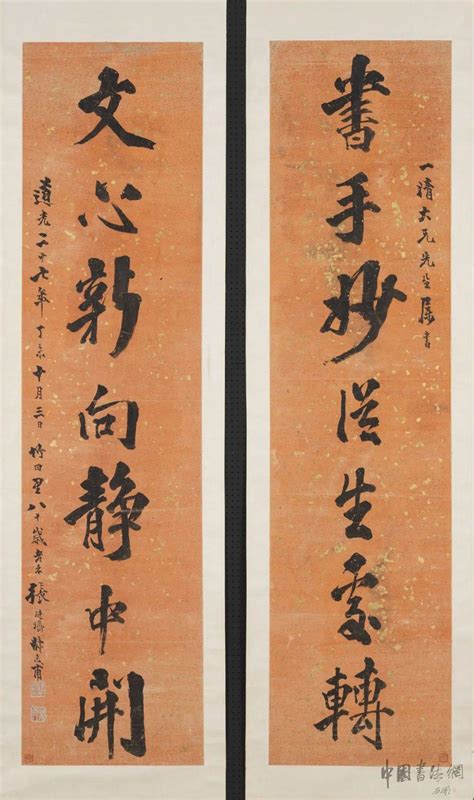 一清大兄先生屬書
書手妙從生處轉
文心新向静中開
道光二十七年丁未十月三日竹田里八十歲老者張廷濟叔未甫
中國書法網